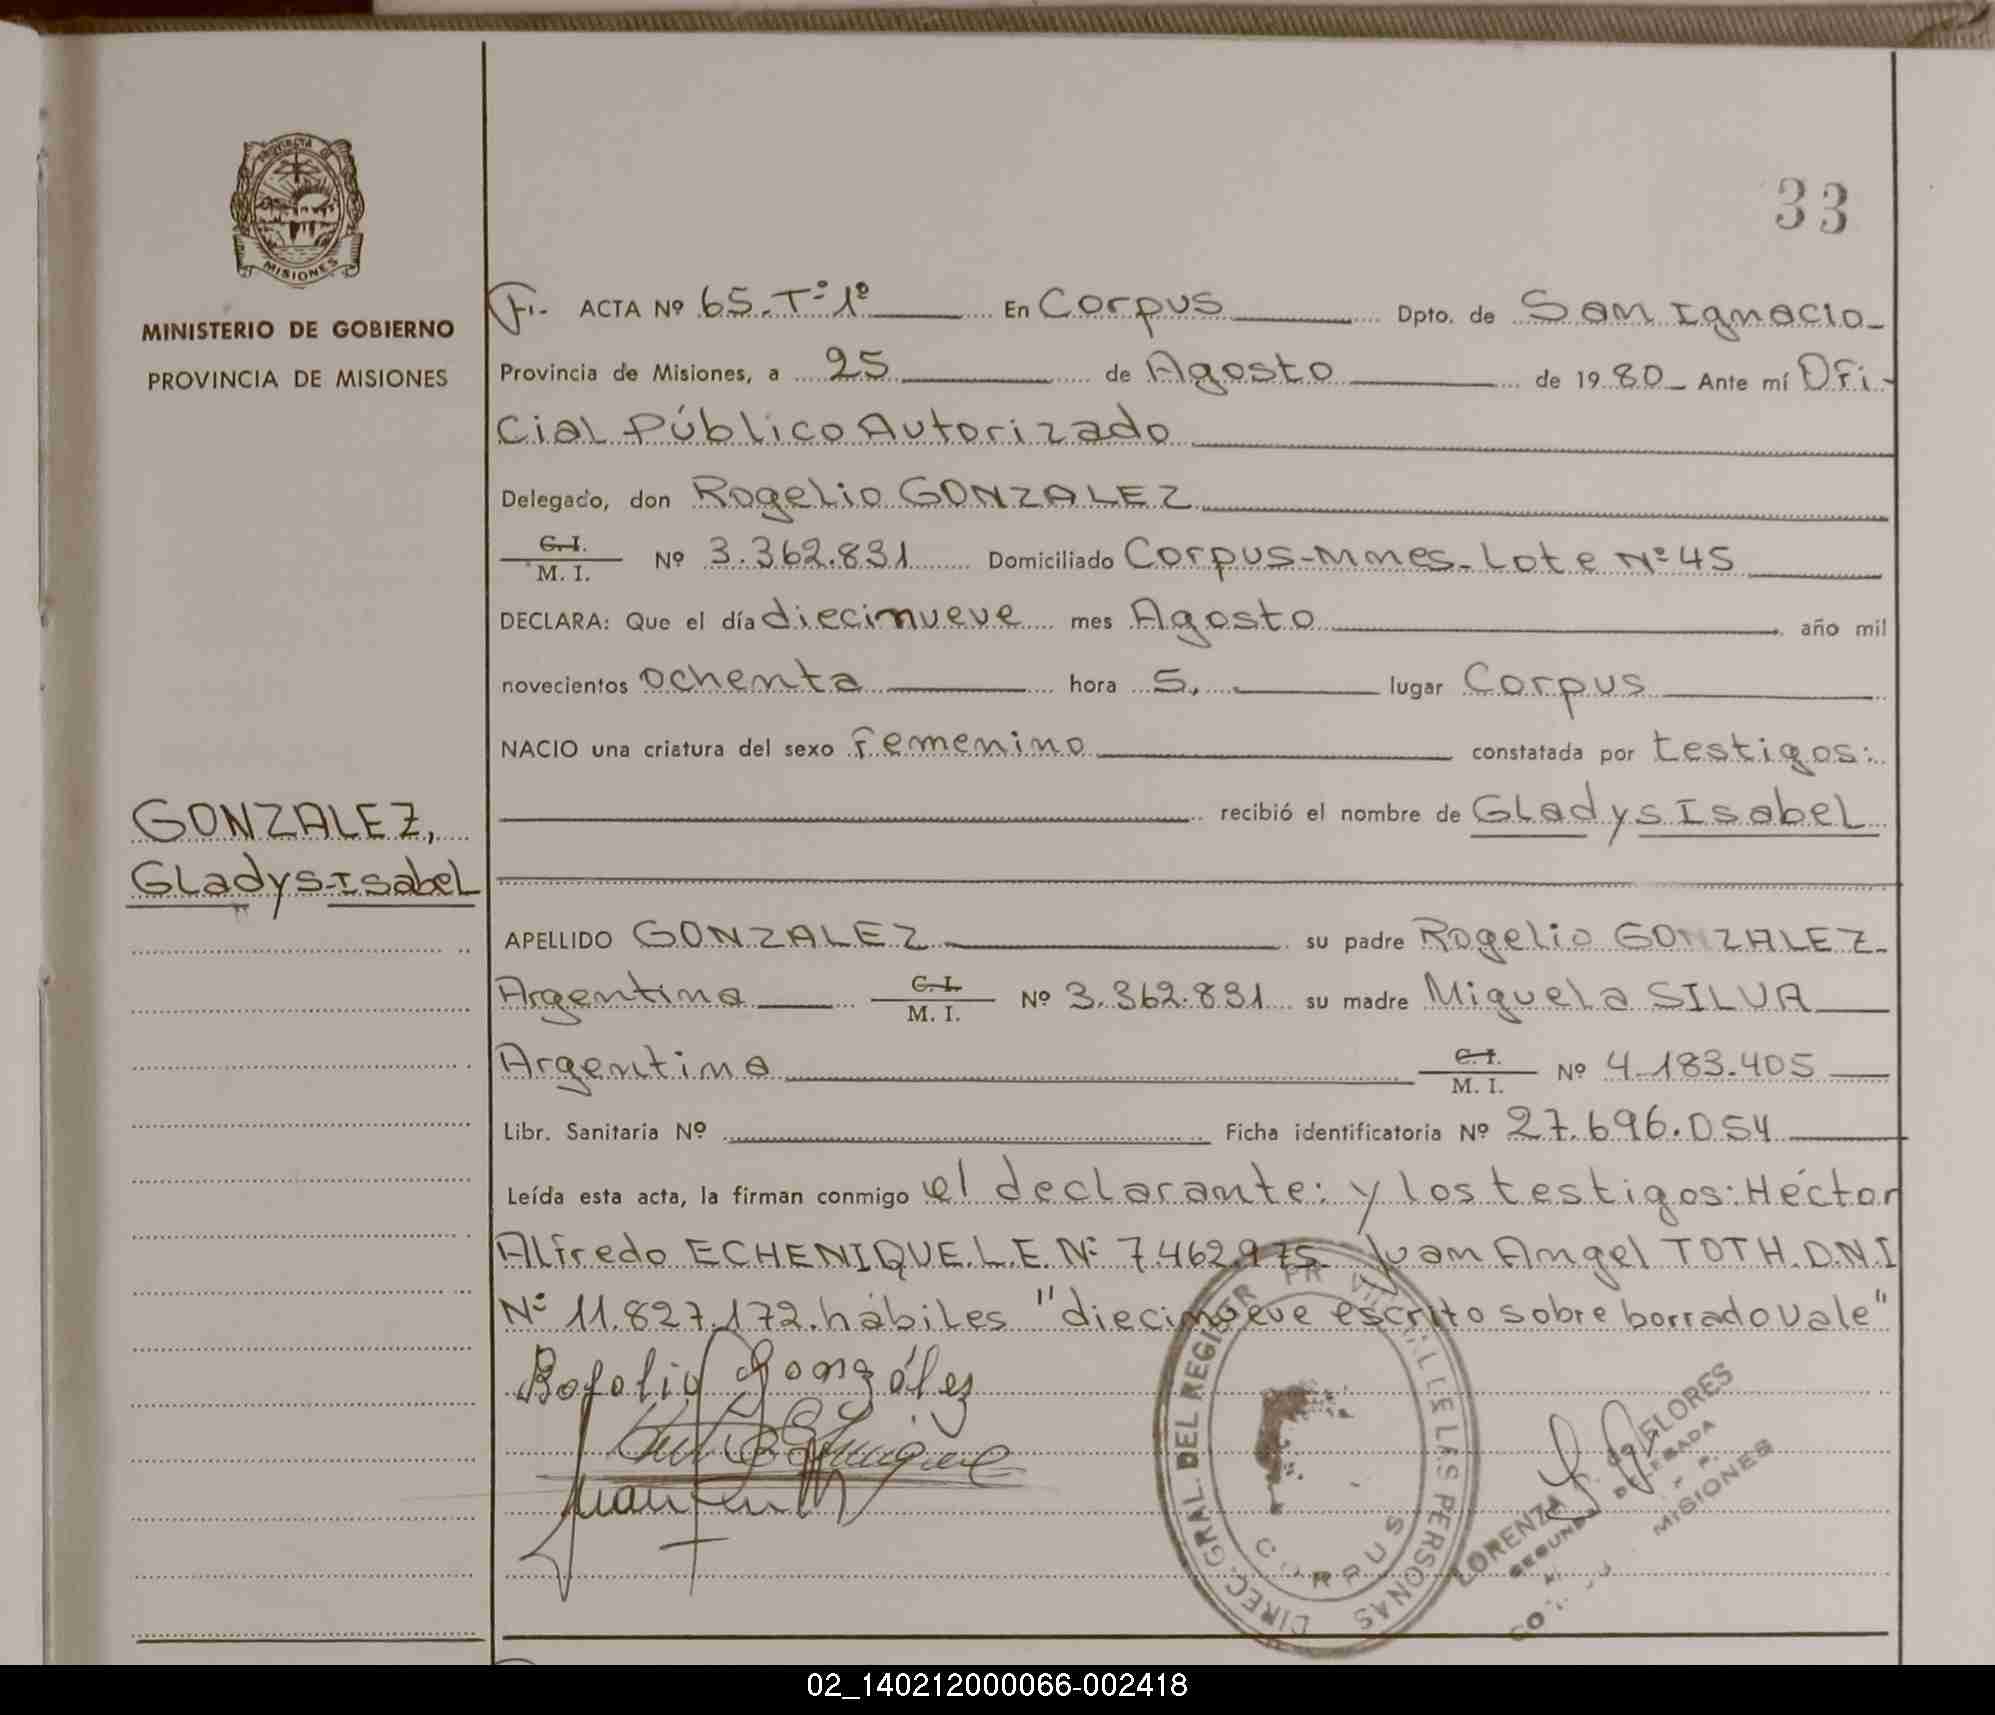 33
PROVINCIA DE
MISIONES
MINISTERIO DE GOBIERNO
PROVINCIA DE MISIONES
GONZALEZ,
Gladys Isabel
F1.- ACTA Nº 65.Tº 1º En Corpus Dpto. de San Ignacio
Provincia de Misiones, a 25 de Agosto de 1980 Ante mí Ofi-
cial Público Autorizado
Delegado, don Rogelio GONZALEZ
C. I. / M. I. Nº 3.362.831 Domiciliado Corpus-Mnes. Lote Nº 45
DECLARA: Que el día diecinueve mes Agosto año mil
novecientos ochenta hora 5. lugar Corpus
NACIO una criatura del sexo femenino constatada por testigos:
recibió el nombre de Gladys Isabel
APELLIDO GONZALEZ su padre Rogelio GONZALEZ
Argentina C. I. / M. I. Nº 3.362.831 su madre Miguela SILVA
Argentina C. I. / M. I. Nº 4.183.405
Libr. Sanitaria Nº Ficha identificatoria Nº 27.696.054
Leída esta acta, la firman conmigo el declarante: y los testigos: Héctor
Alfredo ECHENIQUE.L.E. Nº 7.462.975. Juan Angel TOTH.D.N.I
Nº 11.827.172.hábiles "diecinueve escrito sobre borrado vale"
Rogelio González
DIREC. GRAL. DEL REGISTR PR DE LAS PERSONAS
CORPUS
LORENZA FLORES
SEGUND DELEGADA
MISIONES
02_140212000066-002418